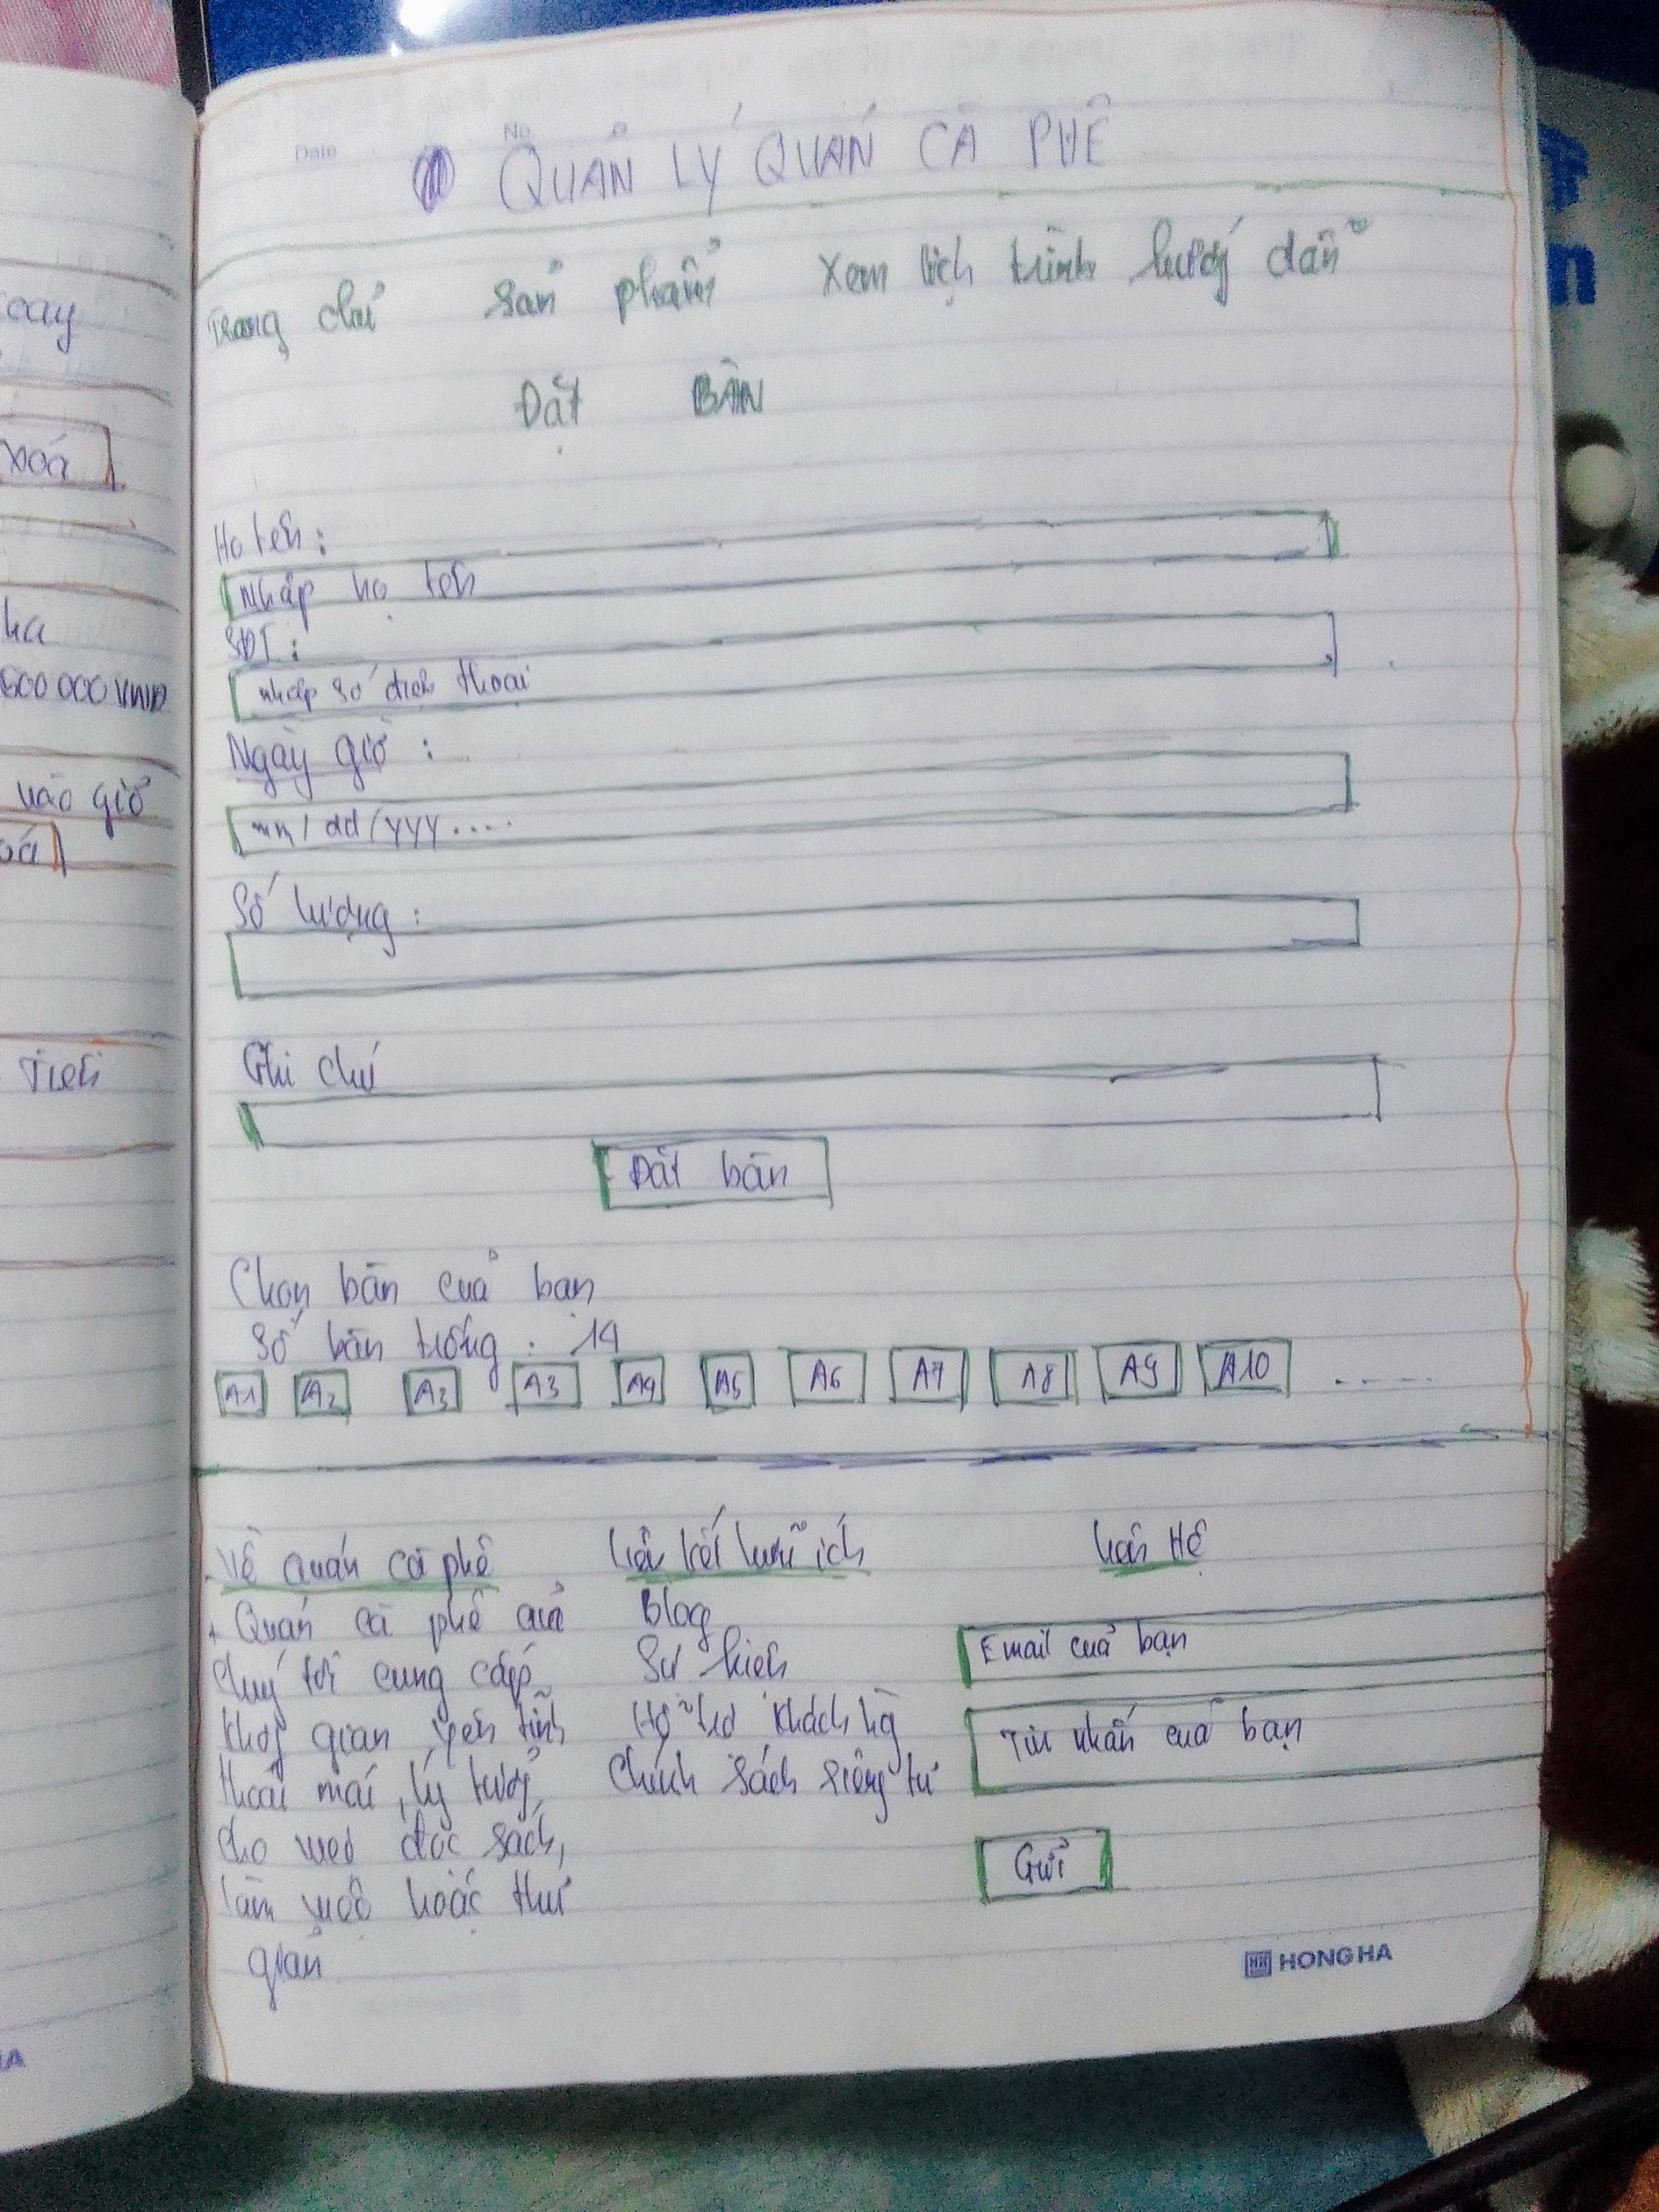 oay
xoá
ha
600 000 VNĐ
vào giỏ
oá
Tiến
Date
No.
QUẢN LÝ QUÁN CÀ PHÊ
Trang chủ sản phẩm Xem lịch trình hướng dẫn
Đặt BÀN
Họ tên :
Nhập họ tên
SĐT :
nhập số điện thoại
Ngày giờ :
mm / dd / yyy ....
Số lượng :
Ghi chú
Đặt bàn
Chọn bàn của bạn
Số bàn trống : 14
A1 A2 A3 A3 A4 A5 A6 A7 A8 A9 A10 .....
Về quán cà phê
+ Quán cà phê của
chúng tôi cung cấp
không gian yên tĩnh
thoải mái, lý tưởng
cho việc đọc sách,
làm việc hoặc thư
giãn
Liên kết hữu ích
Blog
Sự kiện
Hỗ trợ khách hg
Chính sách riêng tư
Liên Hệ
Email của bạn
Tin nhắn của bạn
Gửi
HONG HA